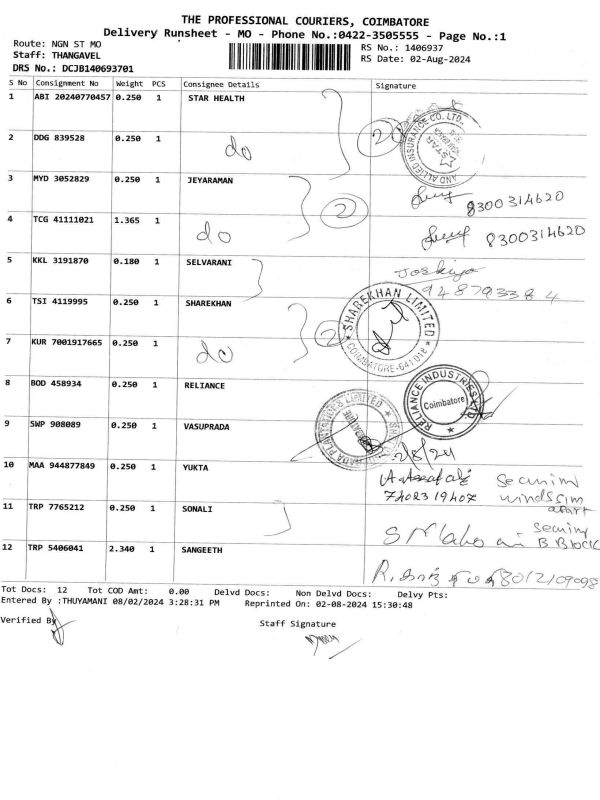 THE PROFESSIONAL COURIERS, COIMBATORE
Delivery Runsheet - MO - Phone No.:0422-3505555 - Page No.:1
Route: NGN ST MO RS No.: 1406937
Staff: THANGAVEL RS Date: 02-Aug-2024
DRS No.: DCJB140693701
S No Consignment No Weight PCS Consignee Details Signature
1 ABI 20240770457 0.250 1 STAR HEALTH
AND ALLIED INSURANCE CO. LTD. STAR
2 DDG 839528 0.250 1 do
3 MYD 3052829 0.250 1 JEYARAMAN 8300314620
2
4 TCG 41111021 1.365 1 do 8300314620
5 KKL 3191870 0.180 1 SELVARANI
6 TSI 4119995 0.250 1 SHAREKHAN 2 SHAREKHAN LIMITED
7 KUR 7001917665 0.250 1 do COIMBATORE-641 018
8 BOD 458934 0.250 1 RELIANCE RELIANCE INDUSTRIES LTD Coimbatore
9 SWP 908089 0.250 1 VASUPRADA LIMITED 2/8/24
10 MAA 944877849 0.250 1 YUKTA
11 TRP 7765212 0.250 1 SONALI
B Block
12 TRP 5406041 2.340 1 SANGEETH
Tot Docs: 12 Tot COD Amt: 0.00 Delvd Docs: Non Delvd Docs: Delvy Pts:
Entered By :THUYAMANI 08/02/2024 3:28:31 PM Reprinted On: 02-08-2024 15:30:48
Verified By
Staff Signature